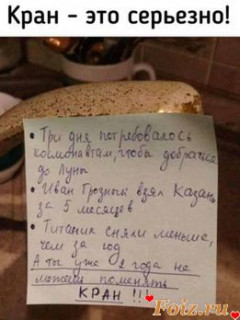 Кран - это серьезно!
• Три дня потребовалось
космонавтам, чтобы добраться
до Луны
• Иван Грозный взял Казань
за 5 месяцев
• Титаник сняли меньше,
чем за год
А ты уже 2 года не
можешь поменять
КРАН !!!
Fotz.ru